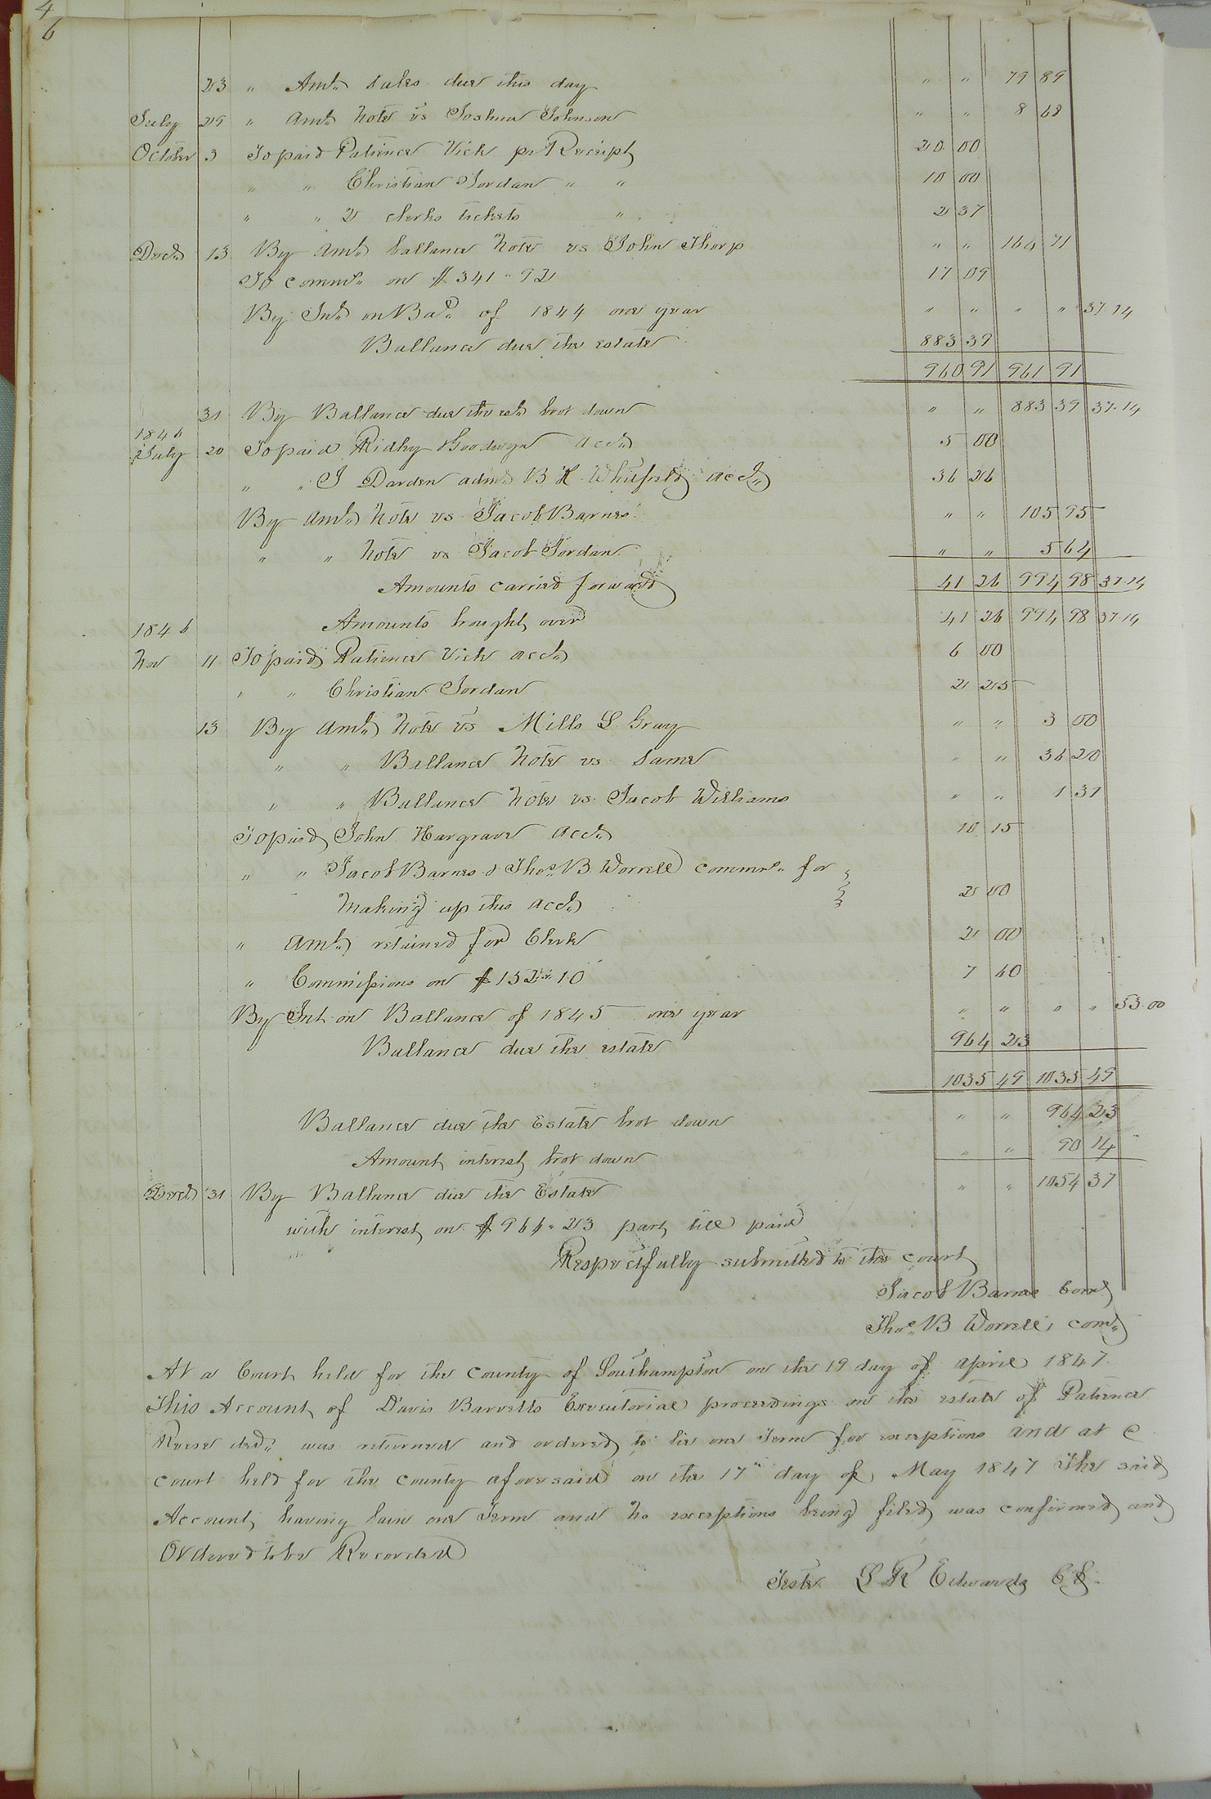 4
6
23 " Amt. sales due this day " " 79 89
July 29 " Amt. Note vs Joshua Johnson " " 8 68
October 3 To paid Patience Vick pr Receipt 20 00
" " Christian Jordan " " 10 00
" " 2 clerks tickets " 2 37
Decr. 13 By Amt. ballance Note vs John Thorp " " 164 71
To comms. on $341"92 17 09
By Int. on Bal. of 1844 one year " " " " 37.14
Ballance due the estate 883 39
960 91 961 91
31 By Ballance due the est. brot down " " 883 39 37.14
1846
July 20 To paid Ridley Goodwyn acct. 5 00
" " J Darden admr. B H Whitfield acct. 36 26
By Amt. Note vs Jacob Barnes " " 105 95
" " Note vs Jacob Jordan " " 5 64
Amounts carried forward 41 26 994 98 37.14
1846 Amounts brought over 41 26 994 98 37.14
Nov 11 To paid Patience Vick acct. 6 00
" " Christian Jordan 2 25
13 By Amt. Note vs Mills L Gray " " 3 00
" " Ballance Note vs Same " " 36 20
" " Ballance Note vs Jacob Williams " " 1 31
To paid John Hargrave acct. 10 15
" " Jacob Barnes & Thos. B Worrell commrs. for
making up this acct. 2 00
" Amt. retained for Clerk 2 00
" Commissions on $152"10 7 60
By Int. on Ballance of 1845 one year " " " " 53.00
Ballance due the estate 964 23
1035 49 1035 49
Ballance due the Estate brot down " " 964 23
Amount interest brot down " " 90 14
Decr. 31 By Ballance due the Estate " " 1054 37
with interest on $964"23 part till paid
Respectfully submitted to the court
Jacob Barnes Comr.
Thos. B Worrell, comr.
At a Court held for the county of Southampton on the 19 day of april 1847.
This Account of Davis Barretts Executorial proceedings on the estate of Patience
Reese decd. was returned and ordered to lie one Term for exceptions and at a
court held for the county aforesaid on the 17" day of May 1847 The said
Account having lain one Term and No exceptions being filed was confirmed and
Ordered to be Recorded
Teste L R Edwards C.C.